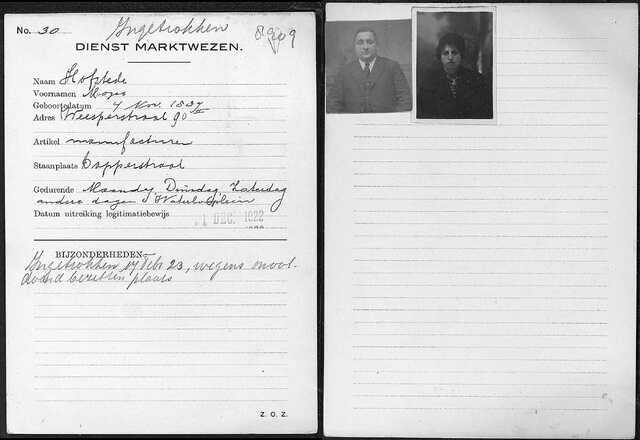 No. 30 Ingetrokken
DIENST MARKTWEZEN.
Naam Hofstede
Voornamen Mozes
Geboortedatum 4 Nov.
Adres Weesperstraat 90 II
Artikel manufacturen
Staanplaats Dapperstraat
Gedurende Maandag, Dinsdag, Zaterdag
andere dagen Waterlooplein
Datum uitreiking legitimatiebewijs 1 DEC. 1922
BIJZONDERHEDEN
Ingetrokken 17 Febr 23, wegens onvol-
doend bezetten plaats
Z. O. Z.